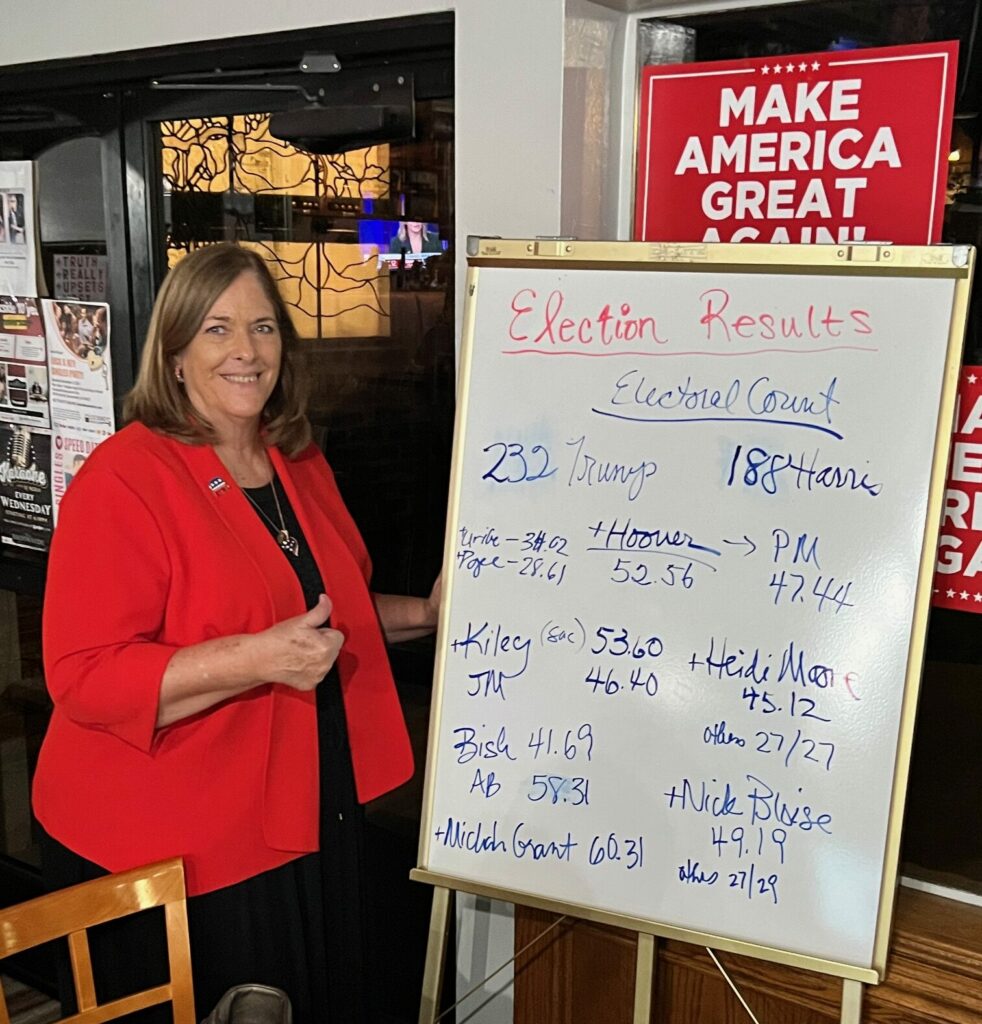 MAKE
AMERICA
GREAT
AGAIN!
TRUTH
REALLY
UPSETS
Karaoke
EVERY
WEDNESDAY
SINGLES
SPEED DAT
Election Results
Electoral Count
232 Trump 188 Harris
+Uribe - 34.02 +Hoover → PM
+Page - 28.61 52.56 47.44
+Kiley (Sac) 53.60 +Heidi Moore
JM 46.40 45.12
others 27/27
Bish 41.69
AB 58.31 +Nick Bloise
49.19
+Michah Grant 60.31
others 27/29